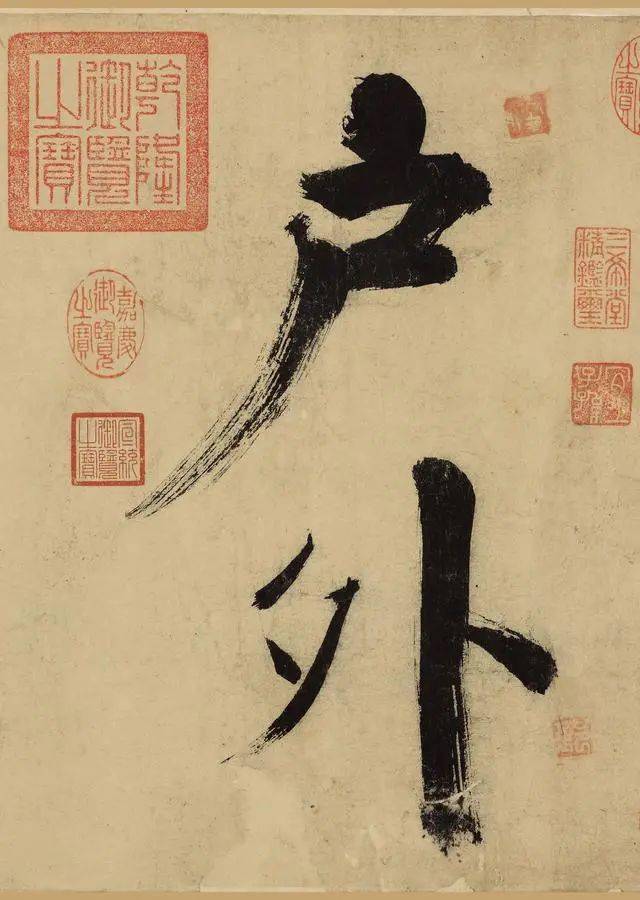 三希堂
精鑑璽
宜
子孫
户外
乾隆
御覽
之寶
嘉慶
御覽
之寶
宣統
御覽
之寶